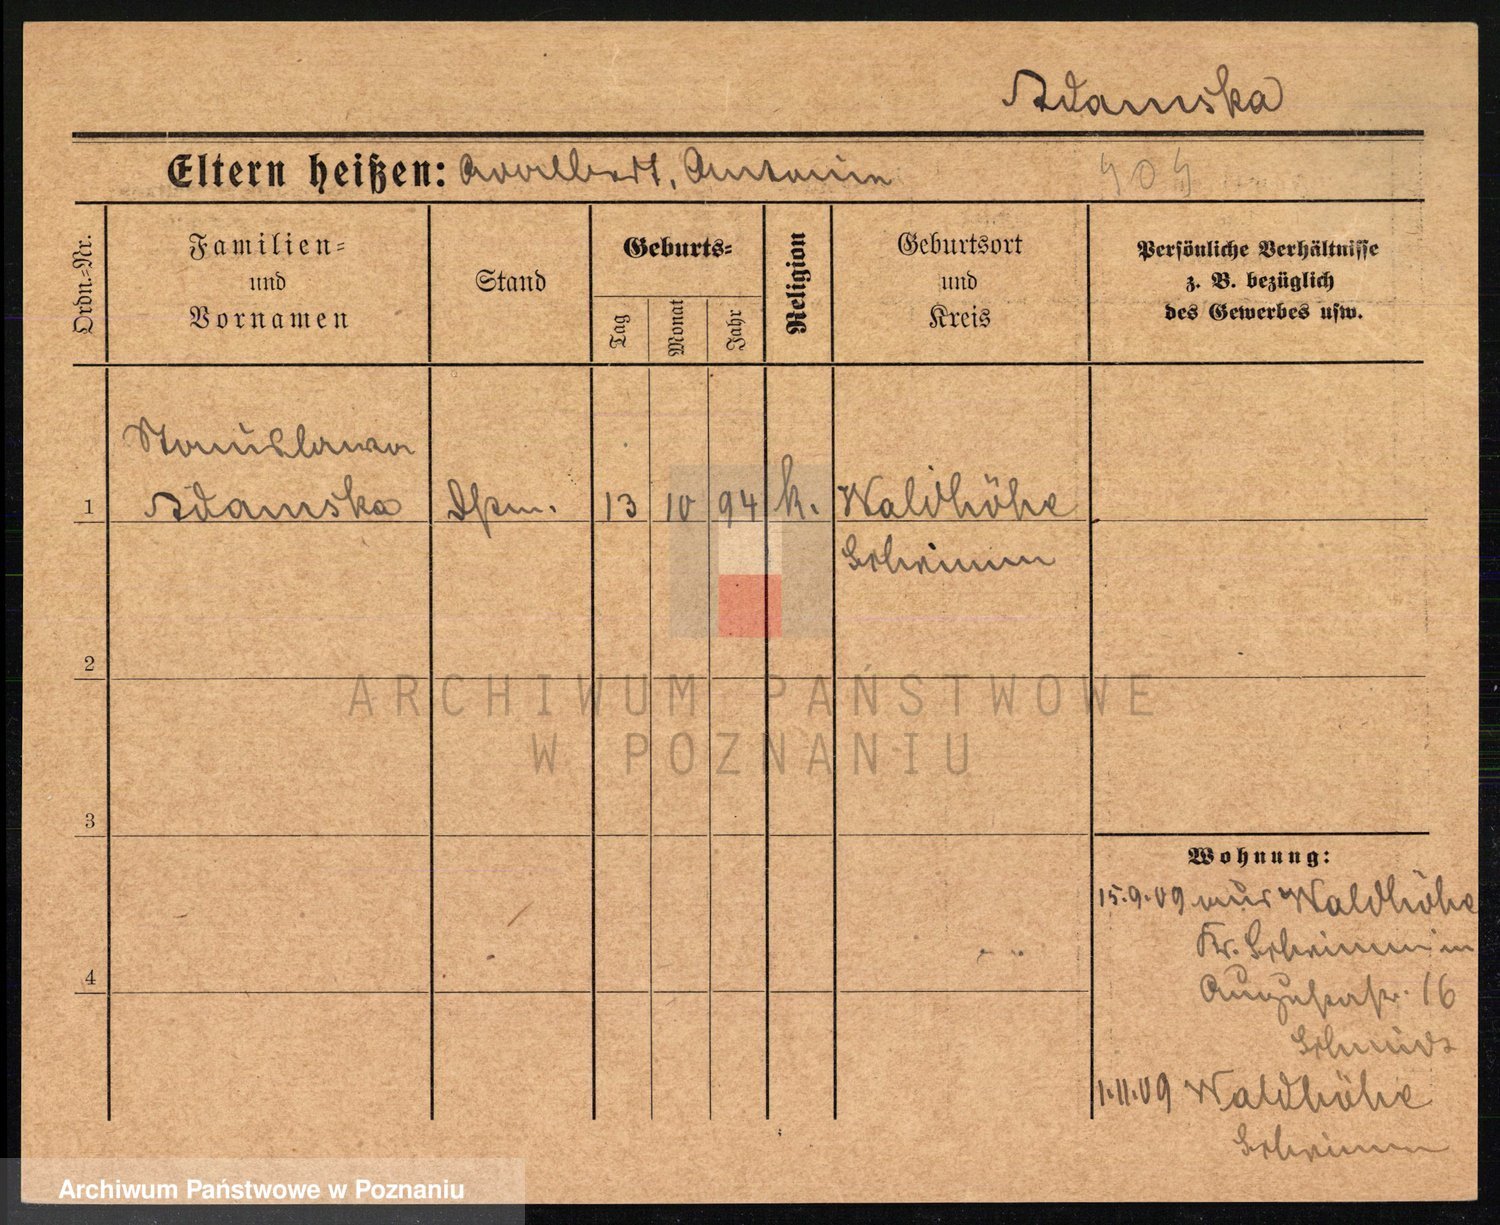 Adamska
Eltern heißen: Adalbert, Antonie
Ordn.-Nr.
Familien-
und
Vornamen
Stand
Geburts-
Tag
Monat
Jahr
Religion
Geburtsort
und
Kreis
Persönliche Verhältnisse
z. B. bezüglich
des Gewerbes usw.
Stanislawa
1 Adamska Dstm. 13 10 94 k. Waldhöhe
Schrimm
2
3
4
ARCHIWUM PAŃSTWOWE
W POZNANIU
Wohnung:
15.9.09 aus Waldhöhe
Kr. Schrimm in
Augustastr. 16
Schmidt
1.11.09 Waldhöhe
Schrimm
Archiwum Państwowe w Poznaniu